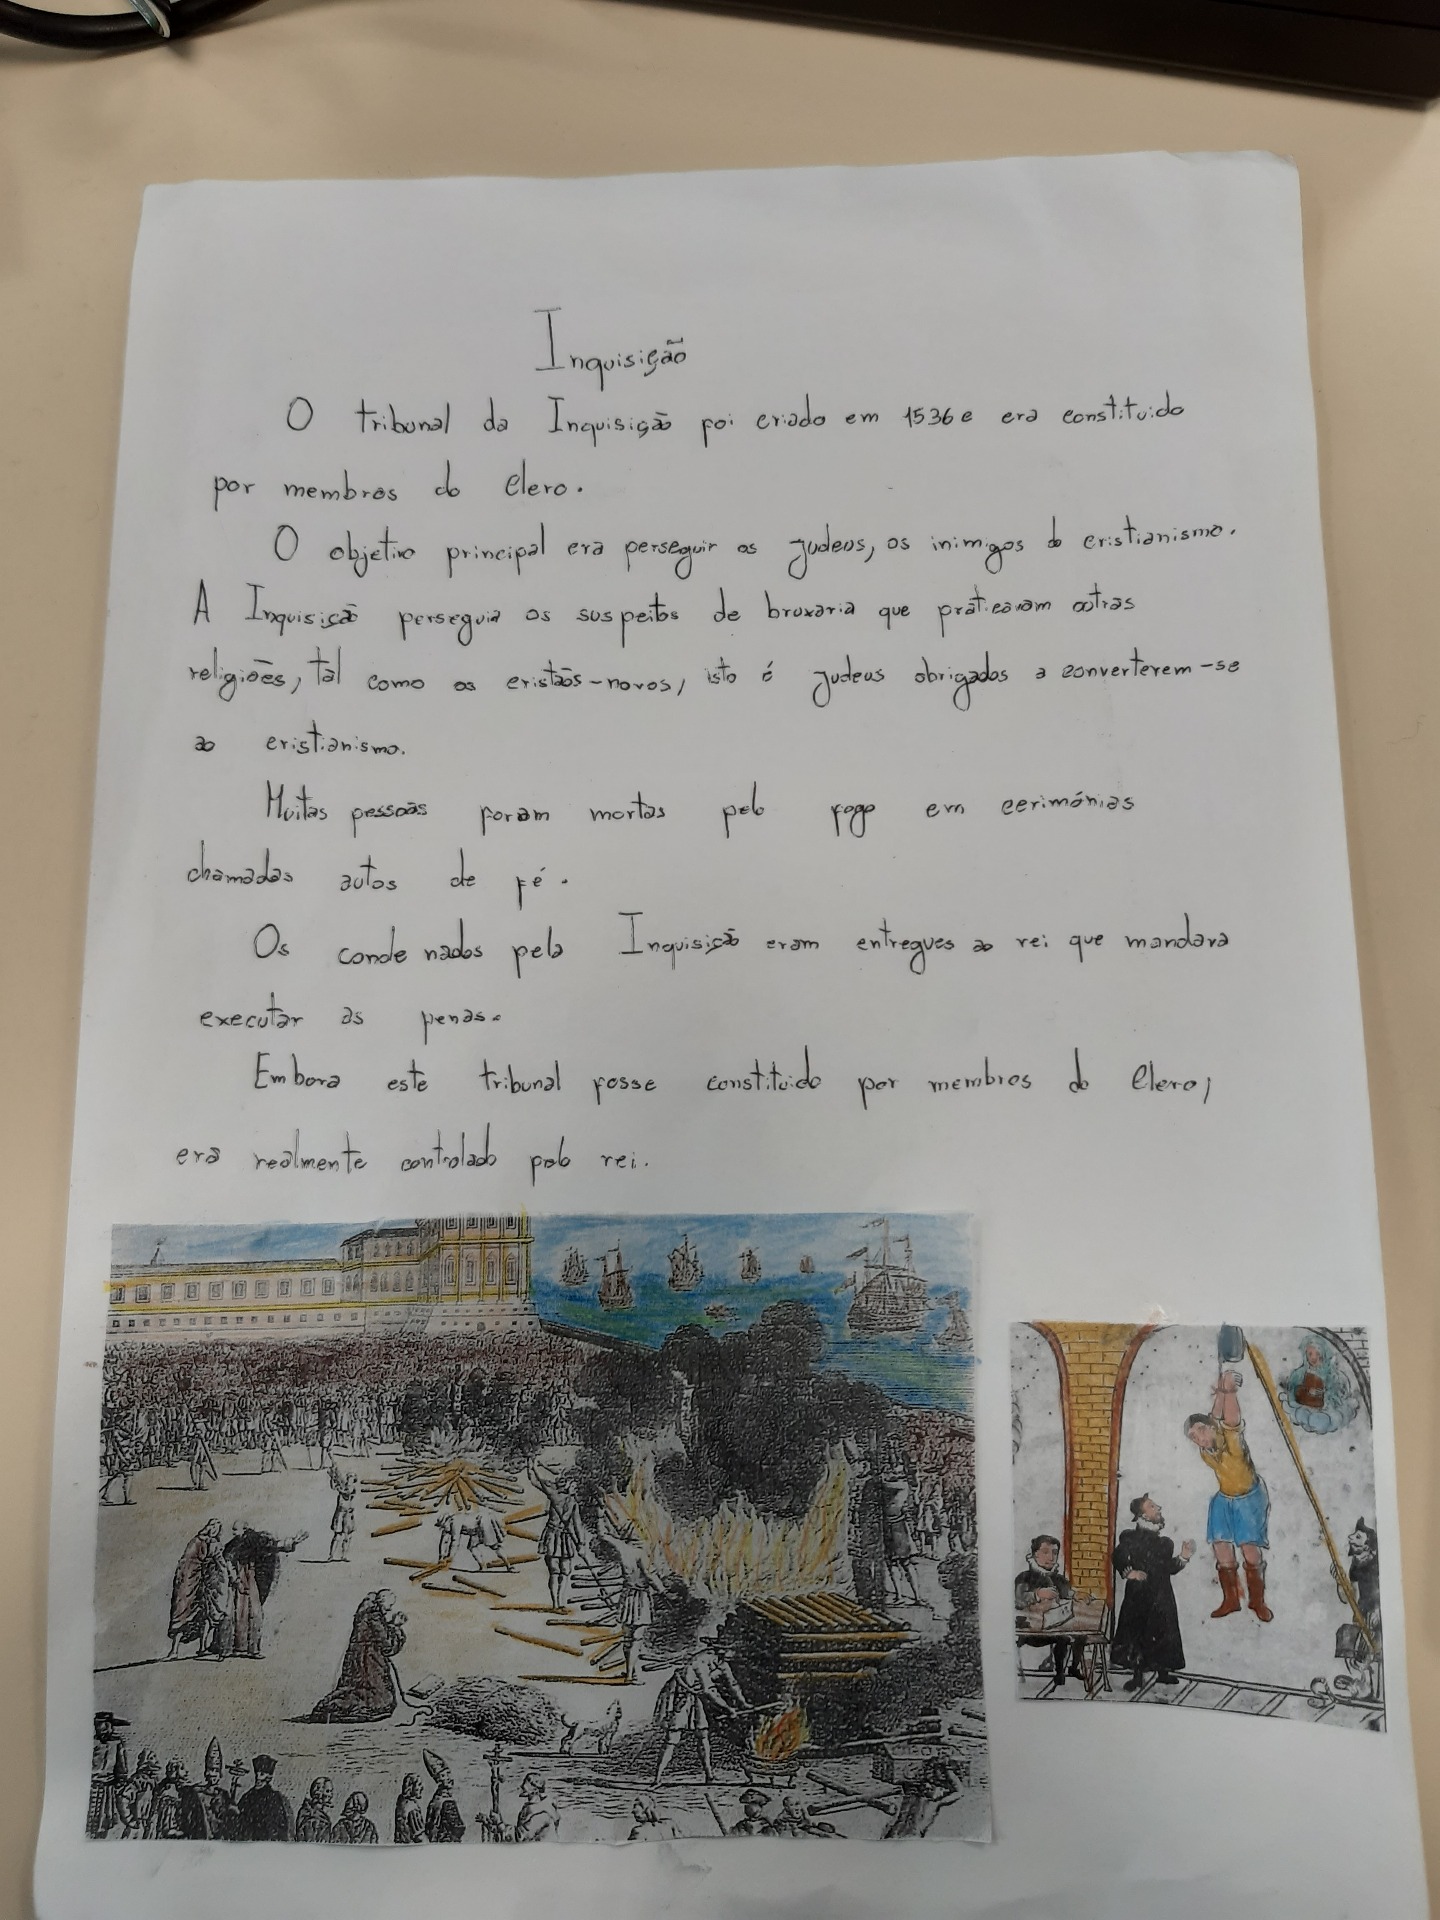 Inquisição
O tribunal da Inquisição foi criado em 1536 e era constituido
por membros do Clero.
O objetivo principal era perseguir os judeus, os inimigos do cristianismo.
A Inquisição perseguia os suspeitos de bruxaria que praticavam outras
religiões, tal como os cristãos-novos, isto é judeus obrigados a converterem-se
ao cristianismo.
Muitas pessoas foram mortas pelo fogo em cerimónias
chamadas autos de fé.
Os condenados pela Inquisição eram entregues ao rei que mandava
executar as penas.
Embora este tribunal fosse constituido por membros do Clero,
era realmente controlado pelo rei.